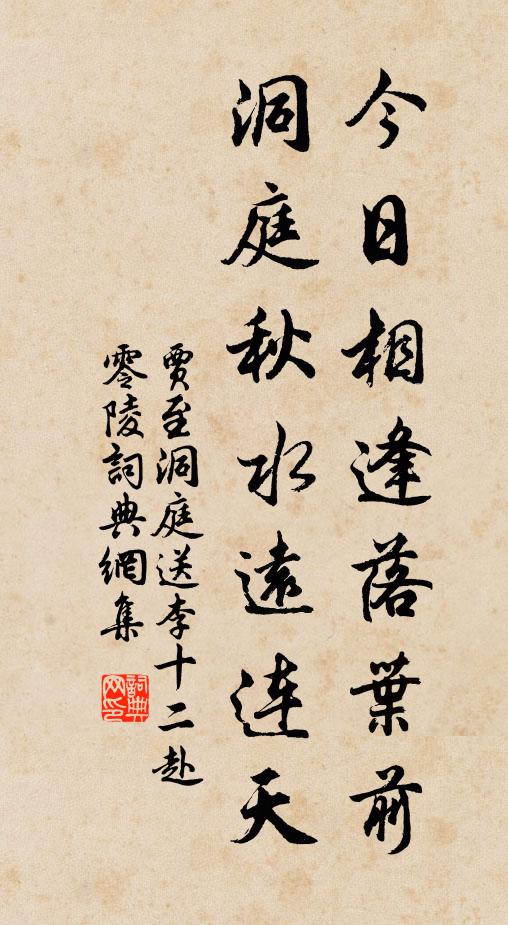 今日相逢落葉前
洞庭秋水遠連天
賈至洞庭送李十二赴
零陵詞典網集
詞典
网印